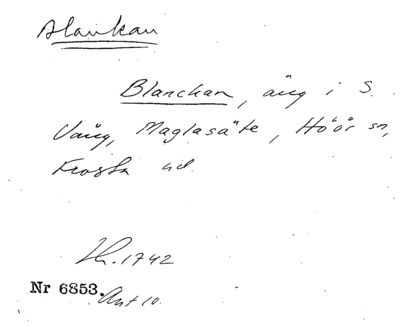 Alankan
Blanckan, äng i S.
Vång, Maglasäte, Höör sn,
Frosta hd.
Lh. 1742
Nr 6853. Akt 10.